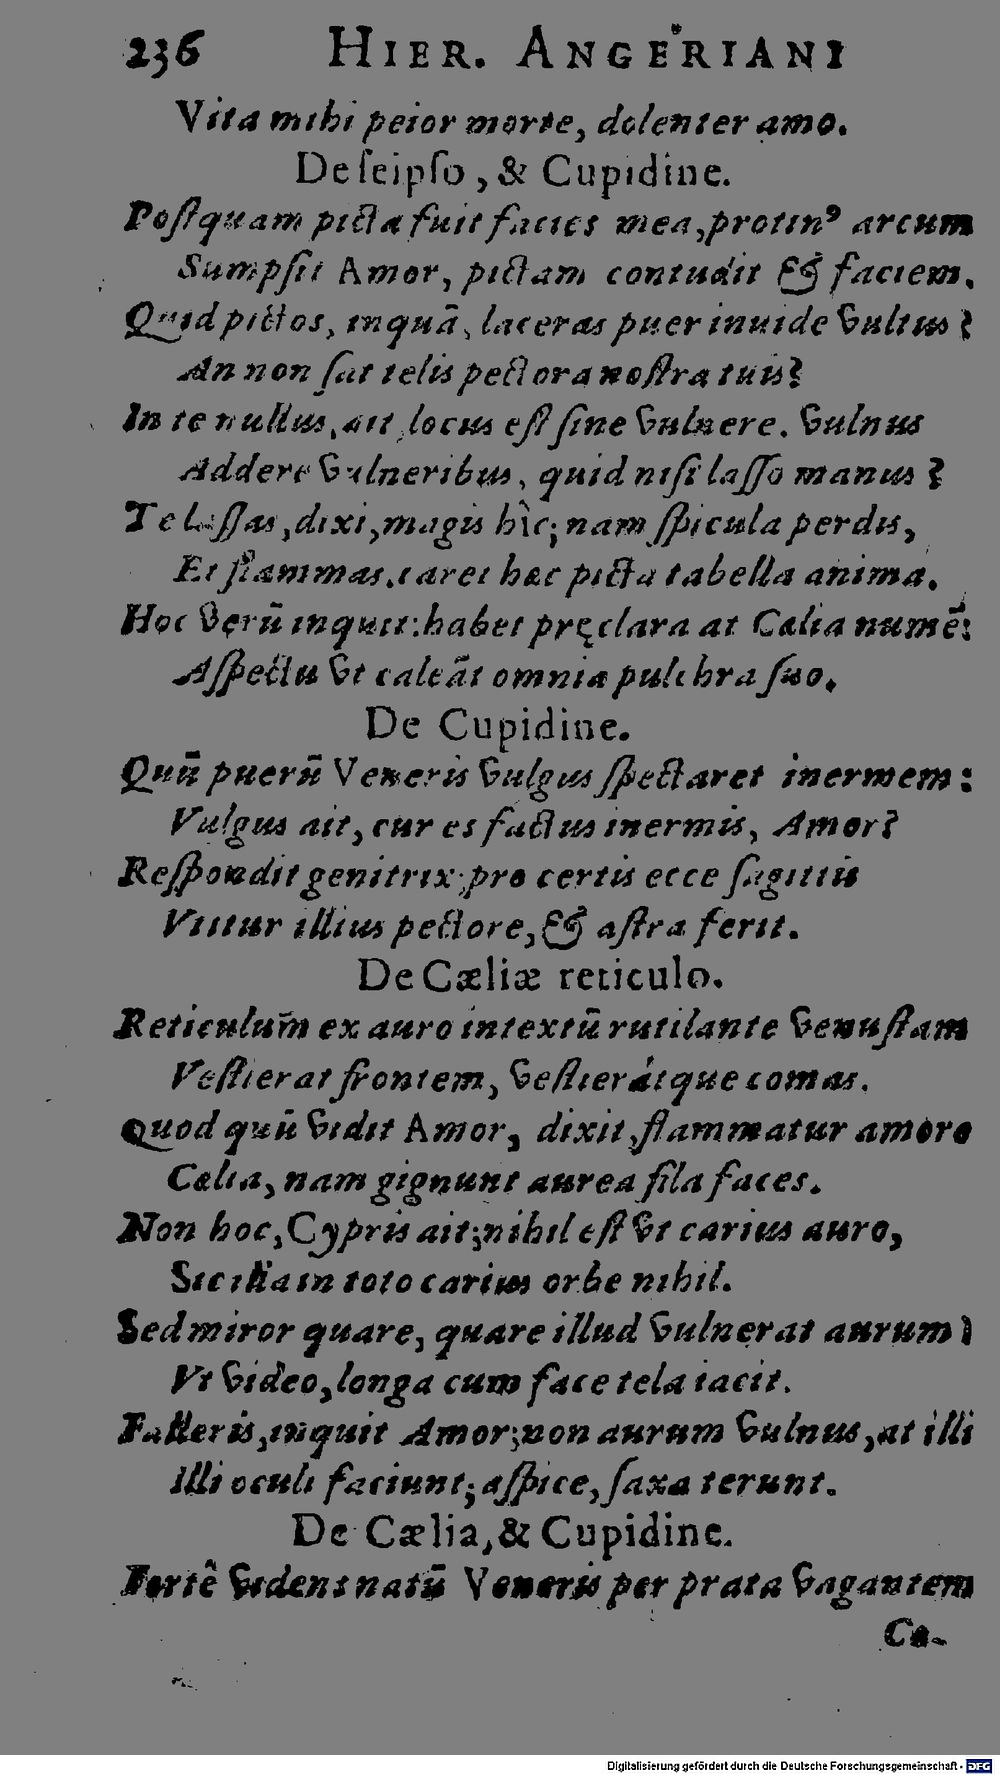 236 HIER. ANGERIANI
Vita mihi peior morte, dolenter amo.
De seipso, & Cupidine.
Postquam picta fuit facies mea, protinꝰ arcum
Sumpsit Amor, pictam contudit & faciem.
Quid pictos, inquã, laceras puer inuide vultus?
An non sat telis pectora nostra tuis?
In te nullus, ait, locus est sine vulnere. vulnus
Addere vulneribus, quid nisi lasso manus?
Te lassas, dixi, magis hìc; nam spicula perdis,
Et flammas. caret hæc picta tabella anima.
Hoc verũ inquit: habet pręclara at Cælia numẽ:
Aspectu vt caleãt omnia pulchra suo.
De Cupidine.
Quũ puerũ Veneris vulgus spectaret inermem:
Vulgus ait, cur es factus inermis, Amor?
Respondit genitrix; pro certis ecce sagittis
Vtitur illius pectore, & astra ferit.
De Cæliæ reticulo.
Reticulum ex auro intextũ rutilante venustam
Vestierat frontem, vestierátque comas.
Quod quũ vidit Amor, dixit, flammatur amore
Cælia, nam gignunt aurea fila faces.
Non hoc, Cypris ait; nihil est vt carius auro,
Sic illa in toto carius orbe nihil.
Sed miror quare, quare illud vulnerat aurum?
Vt video, longa cum face tela iacit.
Falleris, inquit Amor; non aurum vulnus, at illi
Illi oculi faciunt; aspice, saxa terunt.
De Cælia, & Cupidine.
Fortê videns natũ Veneris per prata vagantem
Cæ-
Digitalisierung gefördert durch die Deutsche Forschungsgemeinschaft - DFG